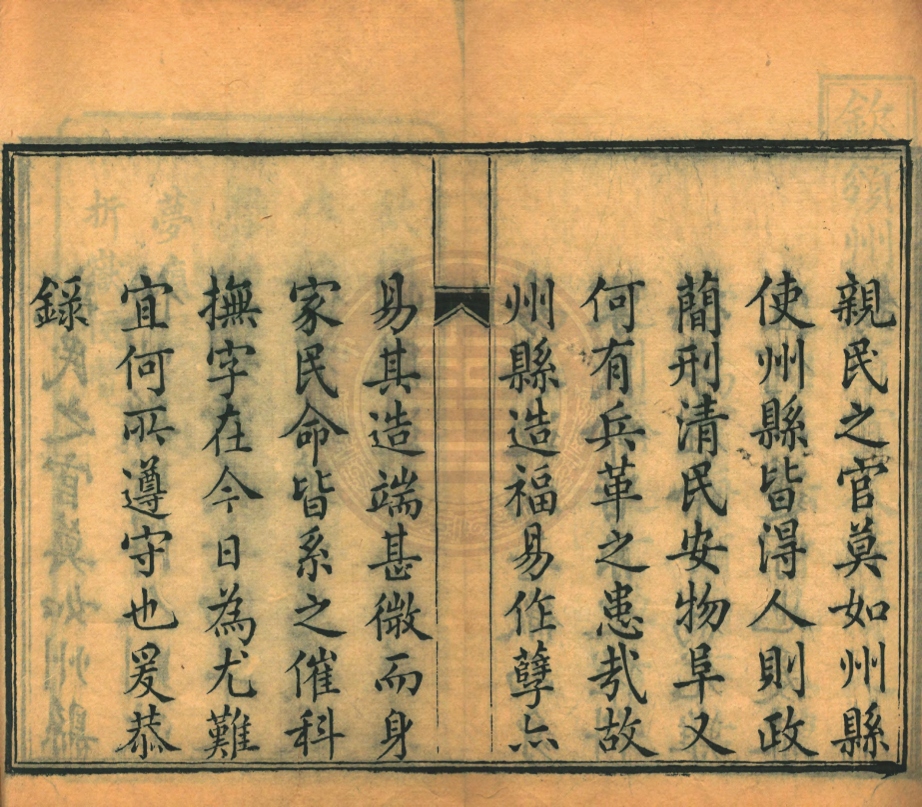 親民之官莫如州縣
使州縣皆淂人則政
簡刑清民安物阜又
何有兵革之患㢤故
州縣造福易作孽亦
易其造端甚微而身
家民命皆系之催科
撫字在今日為尤難
宜何所遵守也爰恭
録